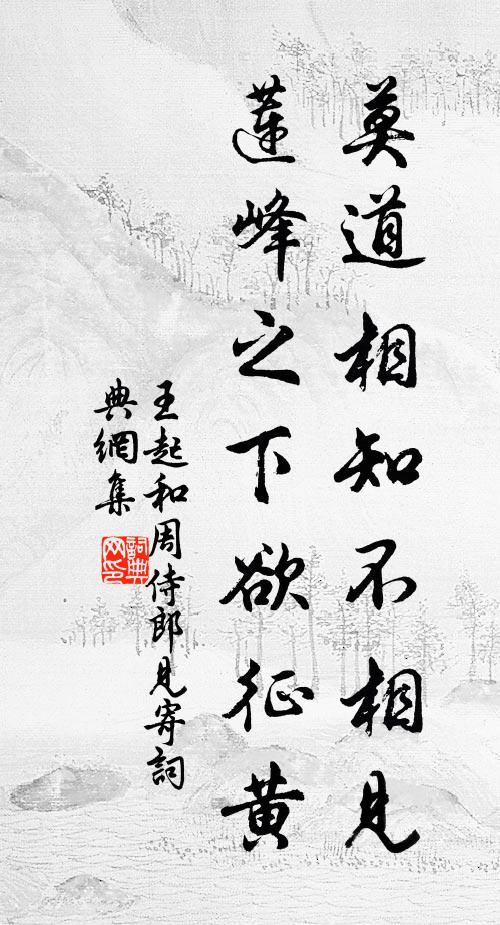 莫道相知不相見
蓮峰之下欲征黃
王起和周侍郎見寄詞
典網集
詞典网印